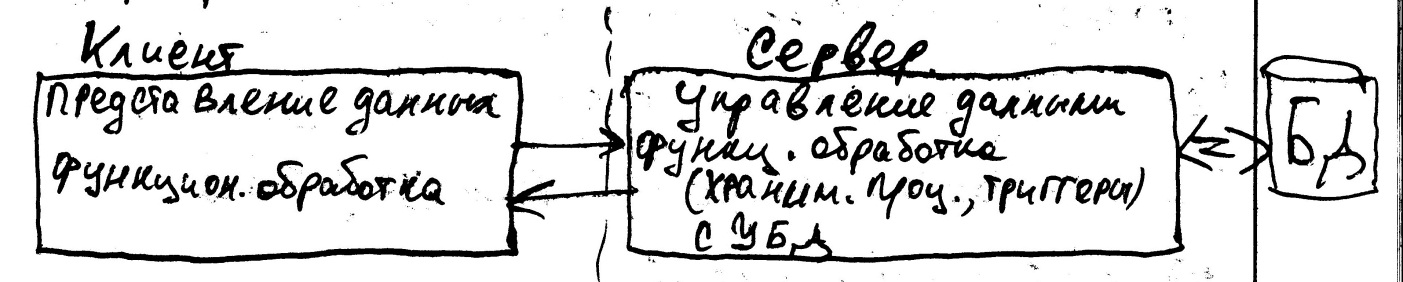 Клиент
Представление данных
функцион. обработка
Сервер
Управление данными
функц. обработка
(храним. проц., триггеры)
СУБД
БД